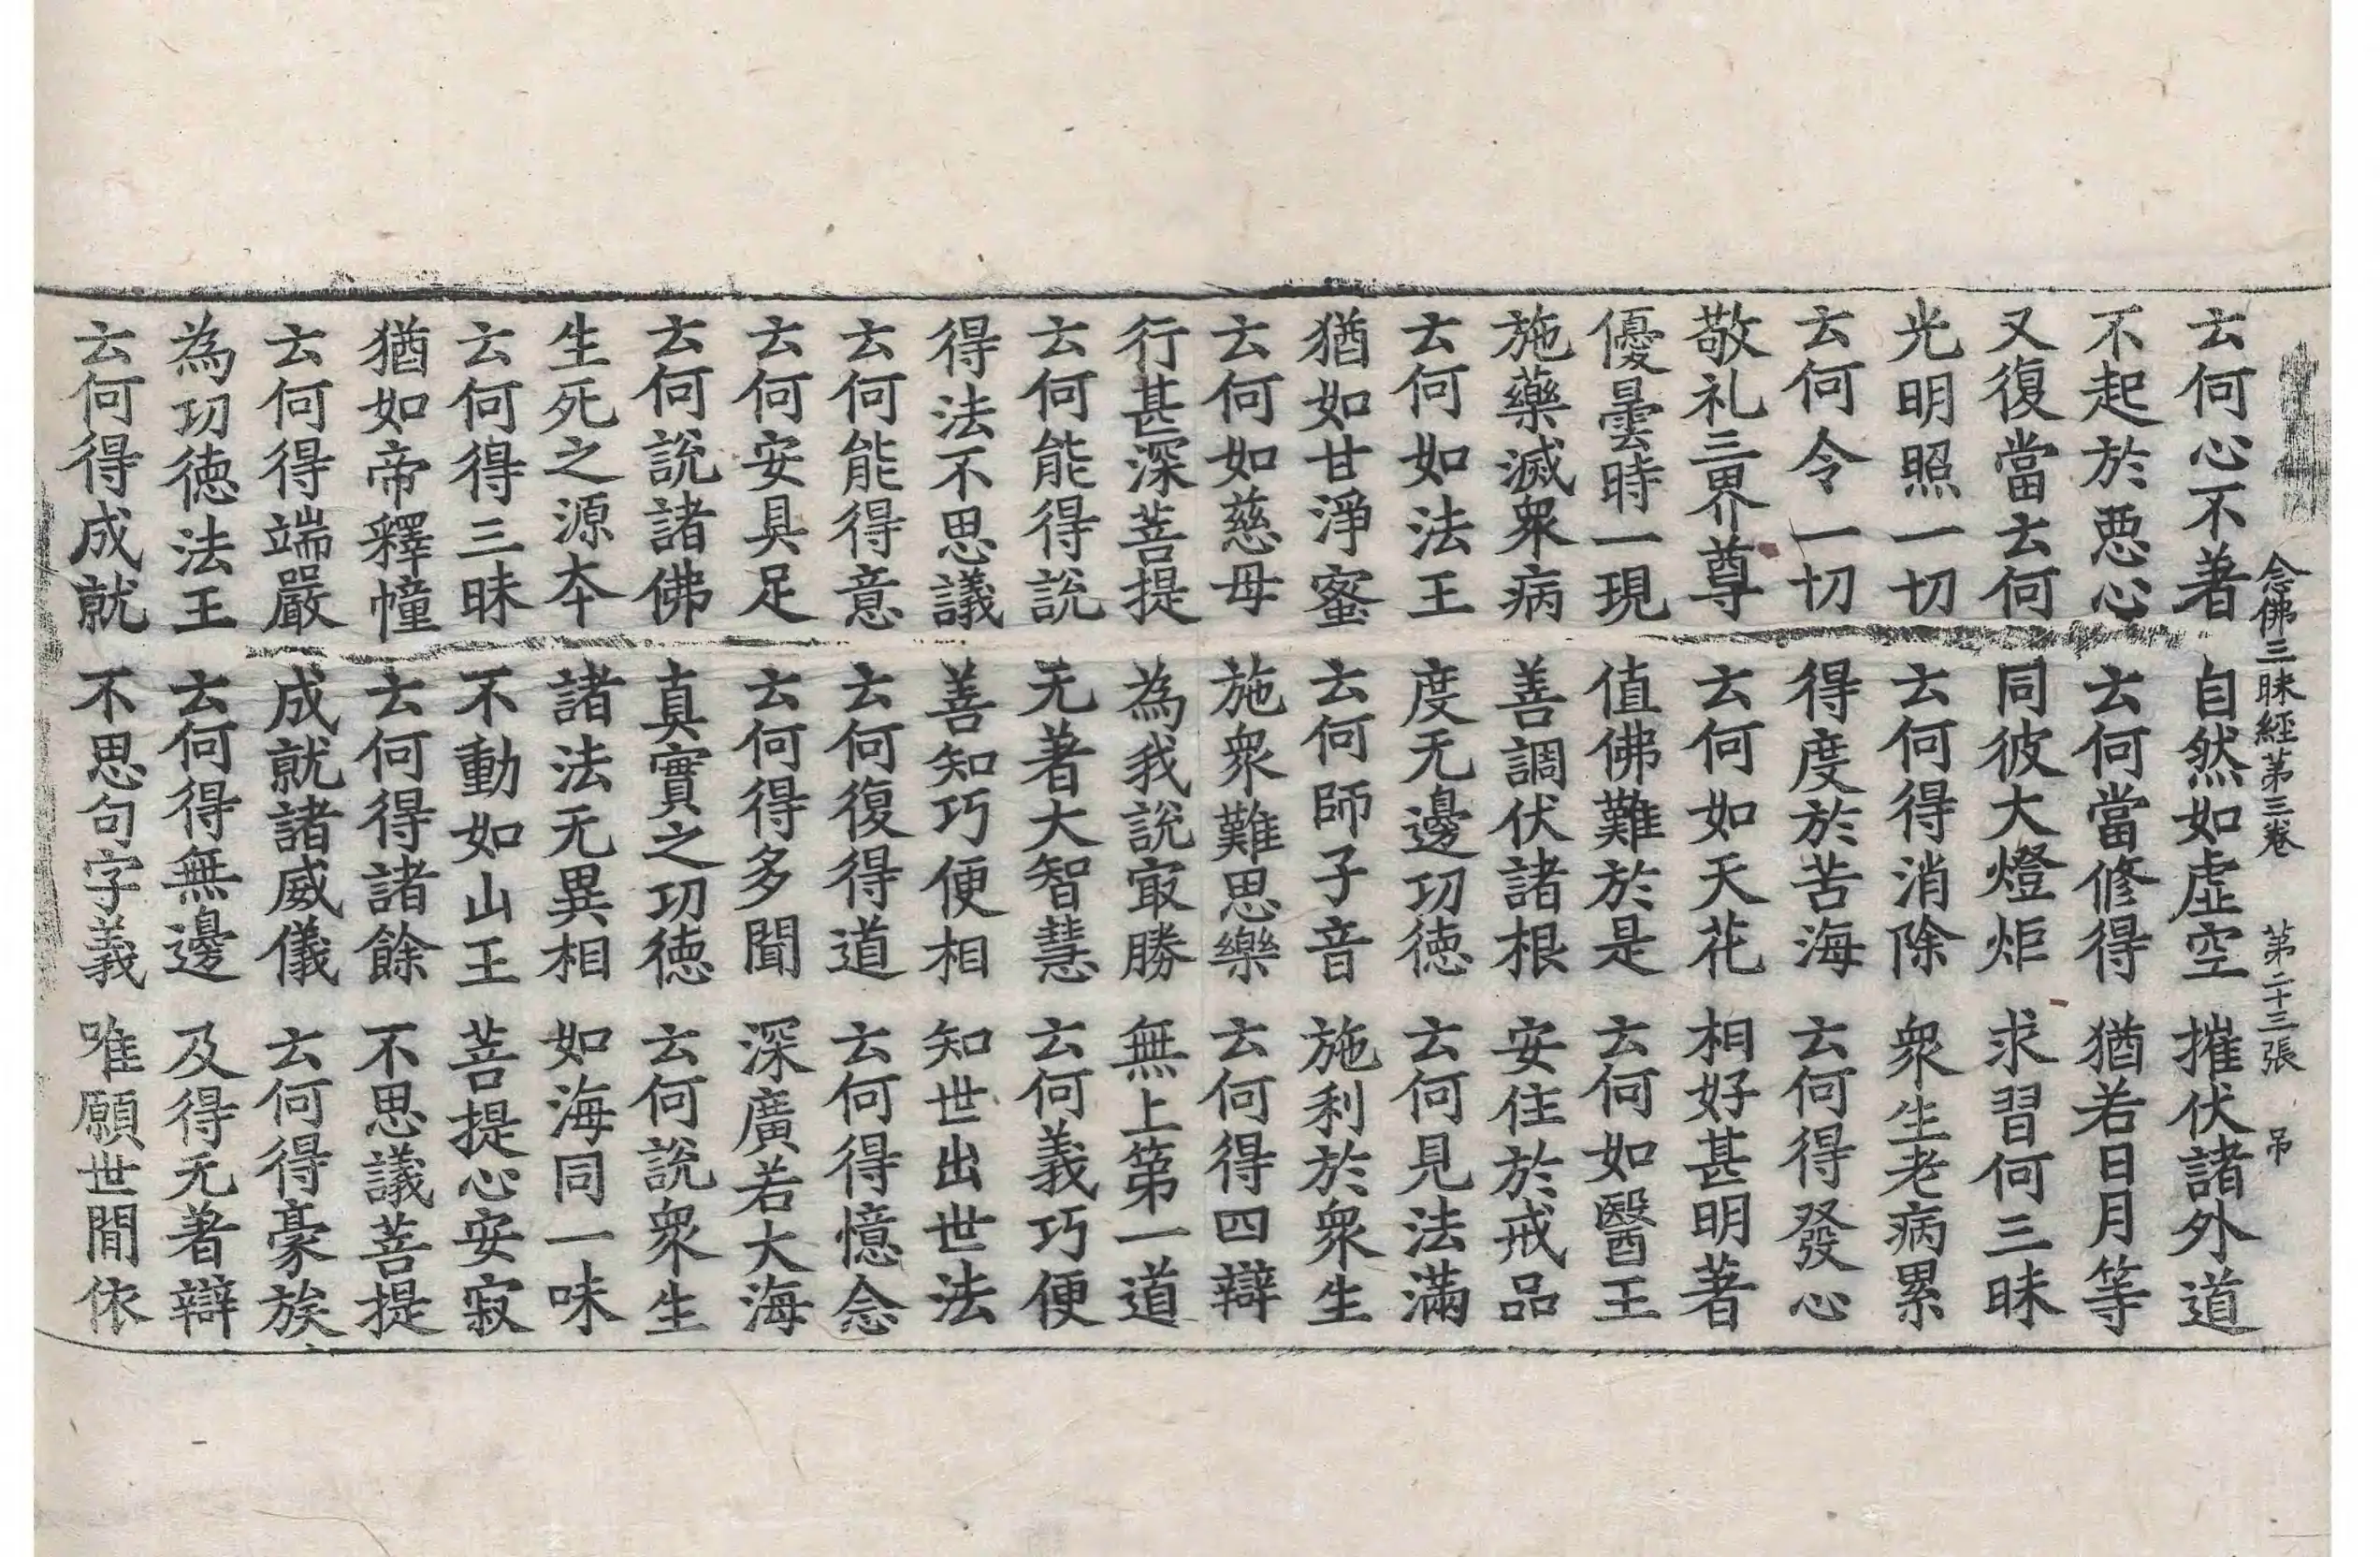 念佛三昧經第三卷 第二十三張 吊
云何心不著 自然如虛空 摧伏諸外道
不起於惡心 云何當修得 猶若日月等
又復當云何 同彼大燈炬 求習何三昧
光明照一切 云何得消除 衆生老病累
云何令一切 得度於苦海 云何得發心
敬礼三界尊 云何如天花 相好甚明著
優曇時一現 值佛難於是 云何如醫王
施藥滅衆病 善調伏諸根 安住於戒品
云何如法王 度无邊功德 云何見法滿
猶如甘淨蜜 云何師子音 施利於衆生
云何如慈母 施衆難思樂 云何得四辯
行甚深菩提 為我說㝡勝 無上第一道
云何能得說 无著大智慧 云何義巧便
得法不思議 善知巧便相 知世出世法
云何能得意 云何復得道 云何得憶念
云何安具足 云何得多聞 深廣若大海
云何說諸佛 真實之功德 云何說衆生
生死之源夲 諸法无異相 如海同一味
云何得三昧 不動如山王 菩提心安寂
猶如帝釋幢 云何得諸餘 不思議菩提
云何得端嚴 成就諸威儀 云何得豪族
為功德法王 云何得無邊 及得无著辯
云何得成就 不思句字義 唯願世間依